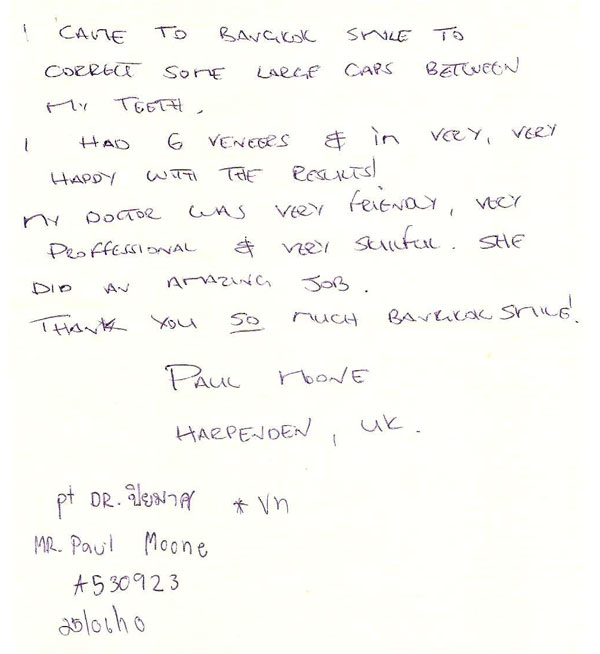 I CAME TO BANGKOK SMILE TO
CORRECT SOME LARGE GAPS BETWEEN
MY TEETH.
I HAD 6 VENEERS & im VERY, VERY
HAPPY WITH THE RESULTS!
MY DOCTOR WAS VERY FRIENDLY, VERY
PROFFESSIONAL & VERY SKILLFUL. SHE
DID AN AMAZING JOB.
THANK YOU SO MUCH BANGKOK SMILE!
PAUL MOONE
HARPENDEN, UK.
pt DR. ปิยมาศ * Vn
MR. Paul Moone
A530923
25/06/10